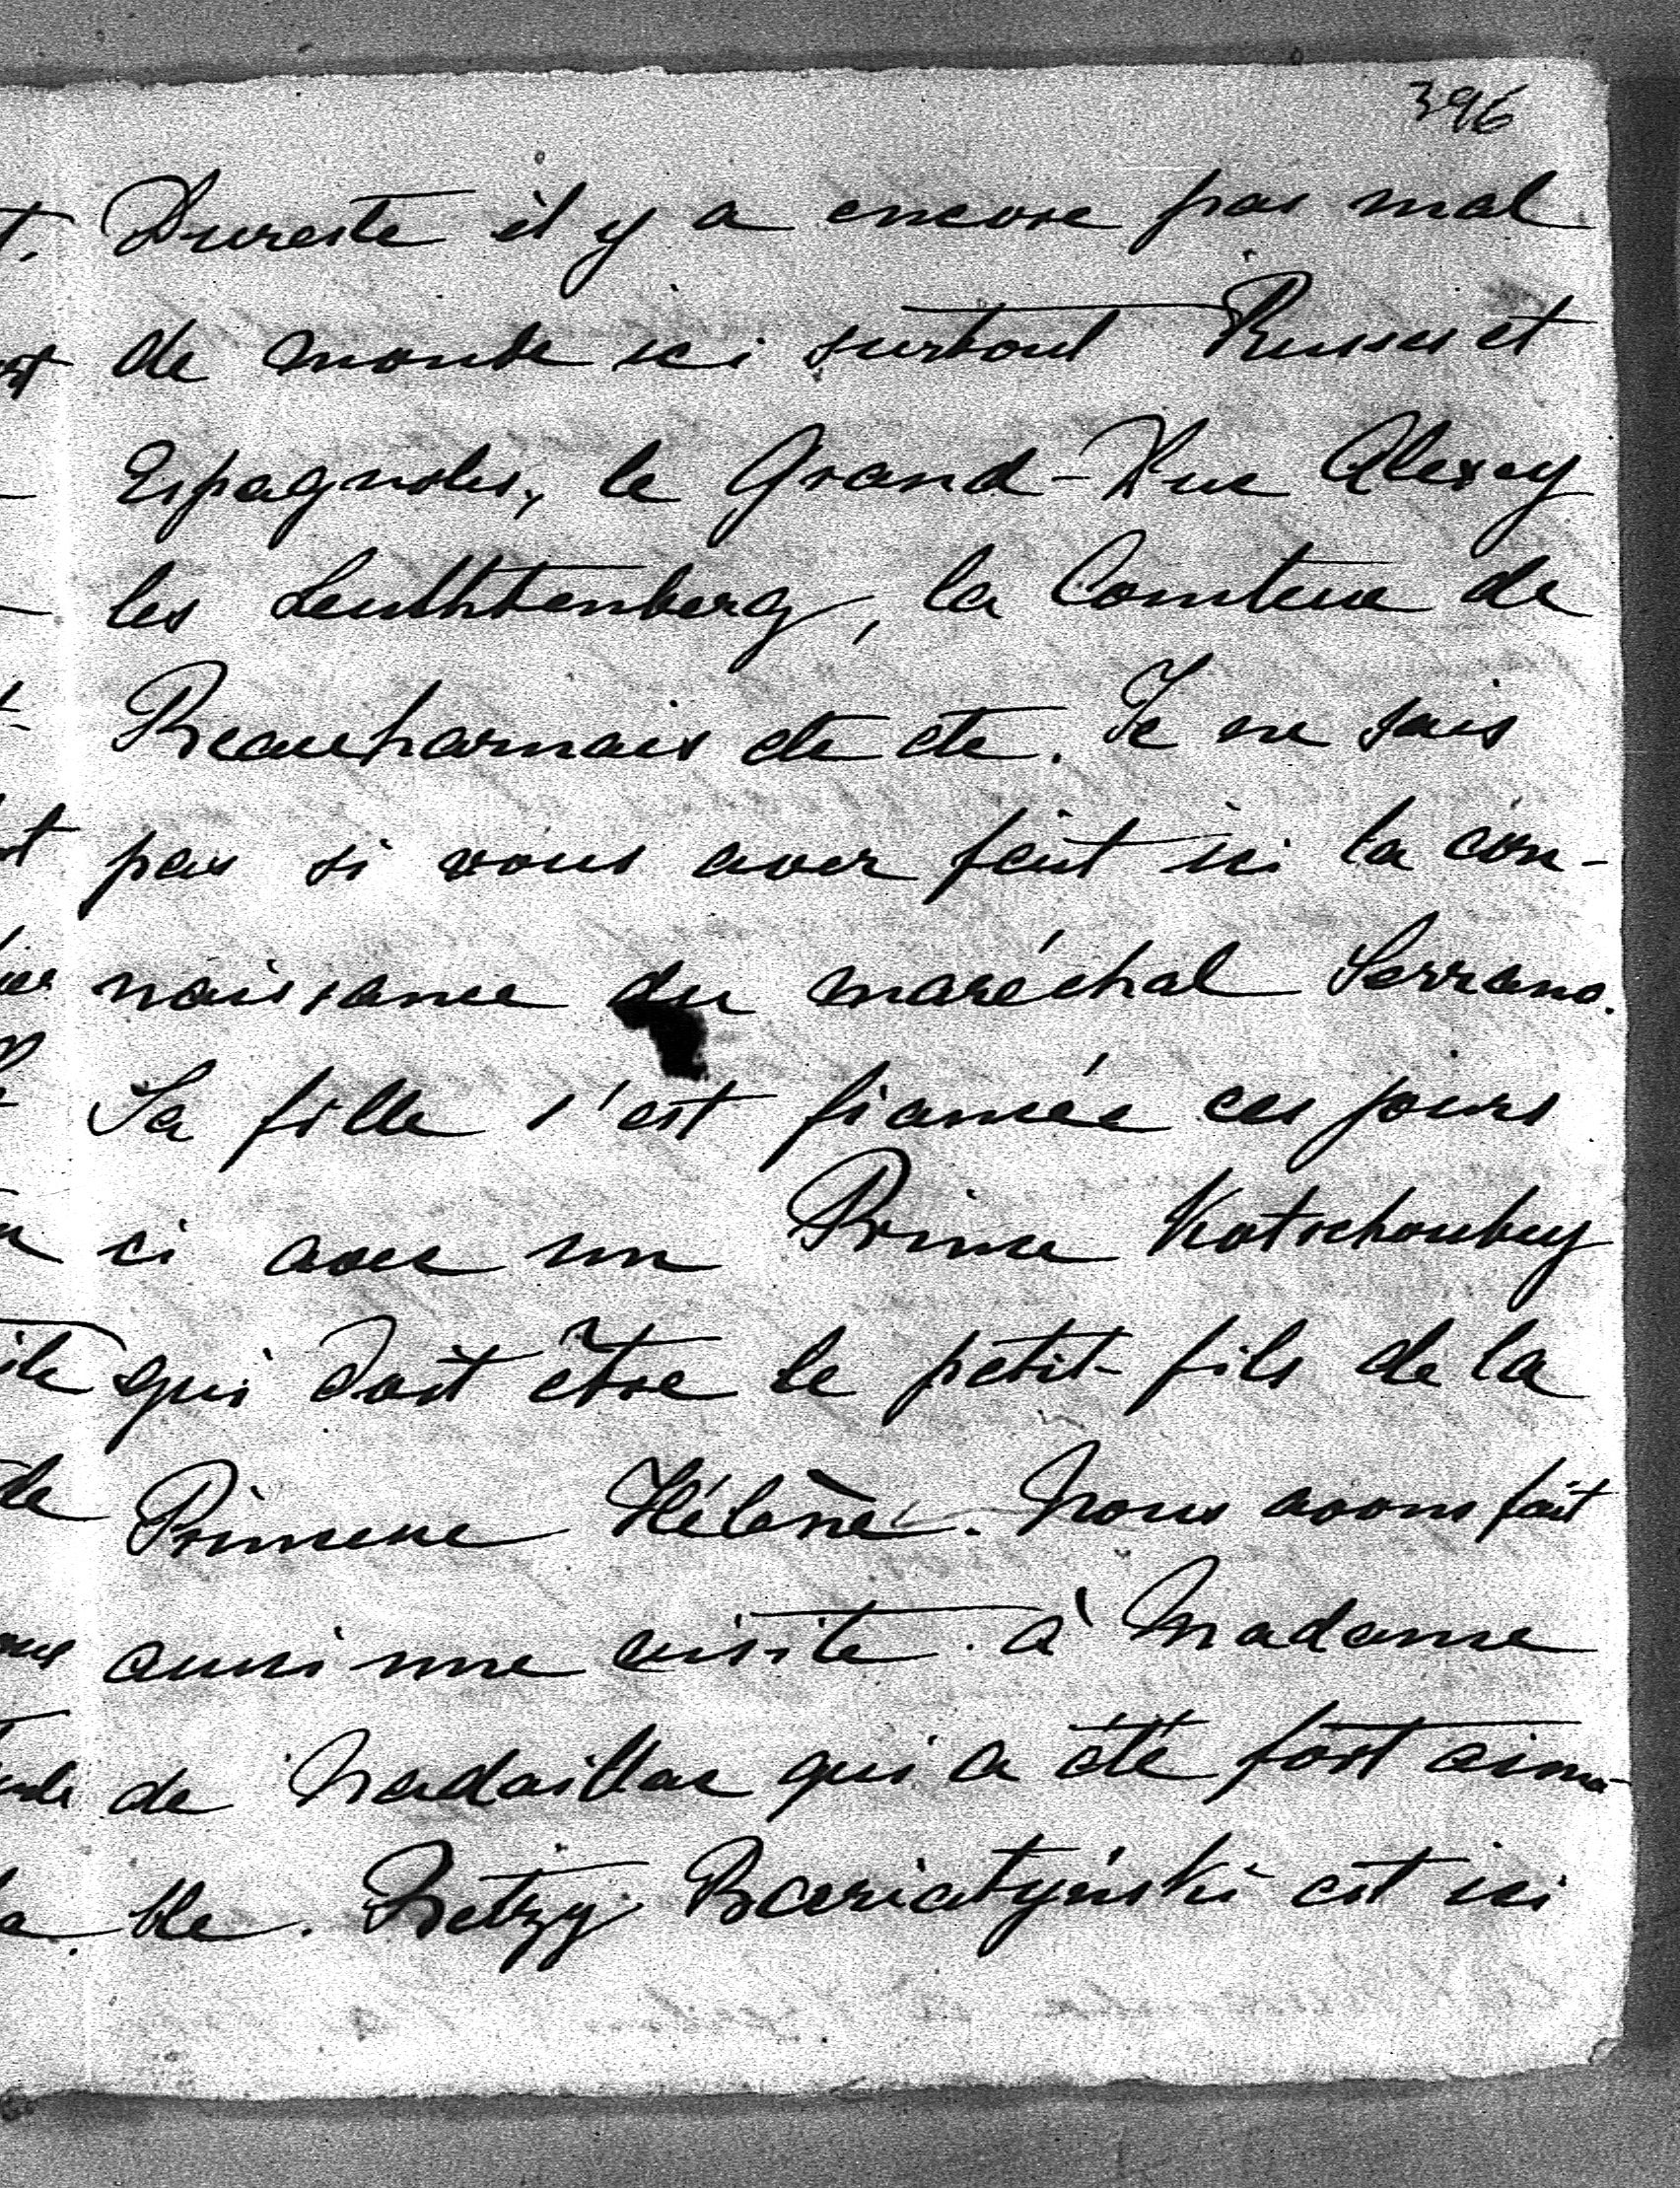 396
Dureste il y a encore pas mal
de monde ici surtout Russes et
Espagnoles, le Grand-Duc Alexey
les Leuchtenberg, la Comtesse de
Beauharnais etc etc. Je ne sais
pas si vous avez fait ici la con-
naissance du maréchal Serrano.
Sa fille s'est fiancée ces jours
ci avec un Prince Kotschoubey
qui doit être le petit-fils de la
Princesse Hélène. Nous avons fait
aussi une visite à Madame
de Nadaillac qui a été fort aima-
ble. Betzy Bariatynski est ici